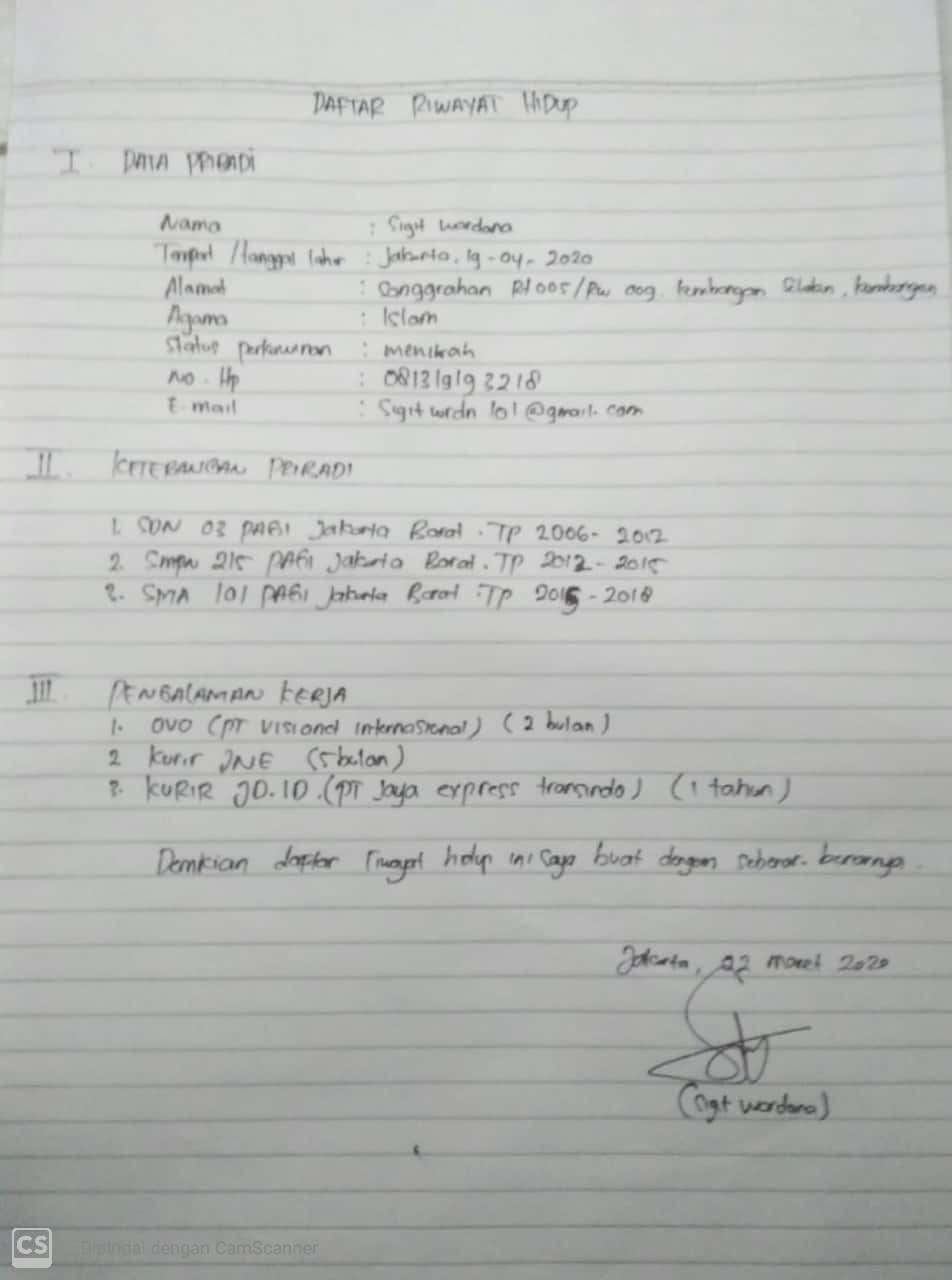 DAFTAR RIWAYAT HIDUP
I. DATA PRIBADI
Nama : Sigit wardana
Tempat /tanggal lahir : Jakarta, 19-04-2020
Alamat : Sanggrahan Rt005/Rw 009. kembangan Selatan, kembangan
Agama : Islam
Status perkawinan : menikah
No. Hp : 081319193218
E-mail : Sigitwrdn101@gmail.com
II. KETERANGAN PRIBADI
1. SDN 03 PAGI Jakarta Barat. TP 2006-2012
2. Smpn 215 PAGI Jakarta Barat. TP 2012-2015
3. SMA 101 PAGI Jakarta Barat :TP 2015-2018
III. PENGALAMAN KERJA
1. OVO (PT Visionet internasional) (2 bulan)
2 Kurir JNE (5 bulan)
3. KURIR JD.ID.(PT Jaya express transindo) (1 tahun)
Demikian daftar riwayat hidup ini saya buat dengan sebenar-benarnya.
Jakarta, 22 maret 2020
(Sigit wardana)
CS Dipindai dengan CamScanner